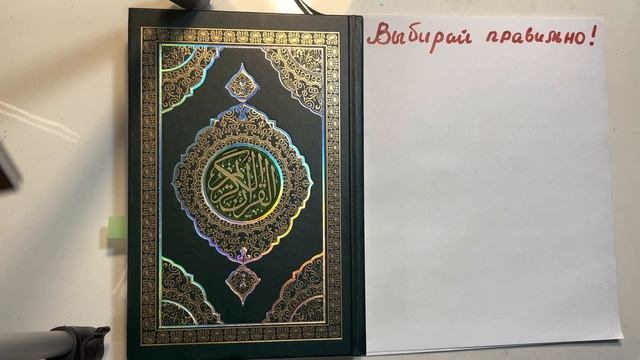 القرآن الكريم
Выбирай правильно!